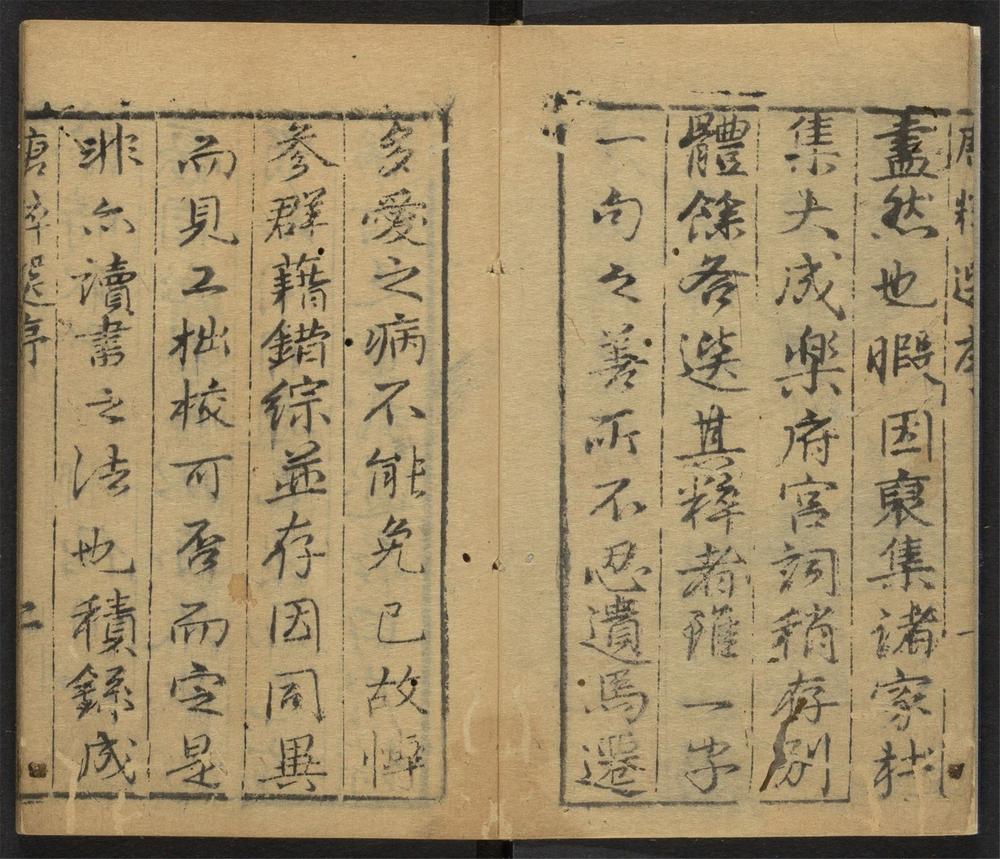 唐粹選序 一
盡然也暇因裒集諸家栞
集大成樂府宮詞稍存別
體餘各選其粹者雖一字
一句之善所不忍遺馬遷
多愛之病不能免已故悟
參群藉錯綜並存因同異
而見工拙核可否而定是
非亦讀書之法也積錄成
唐粹選序 二